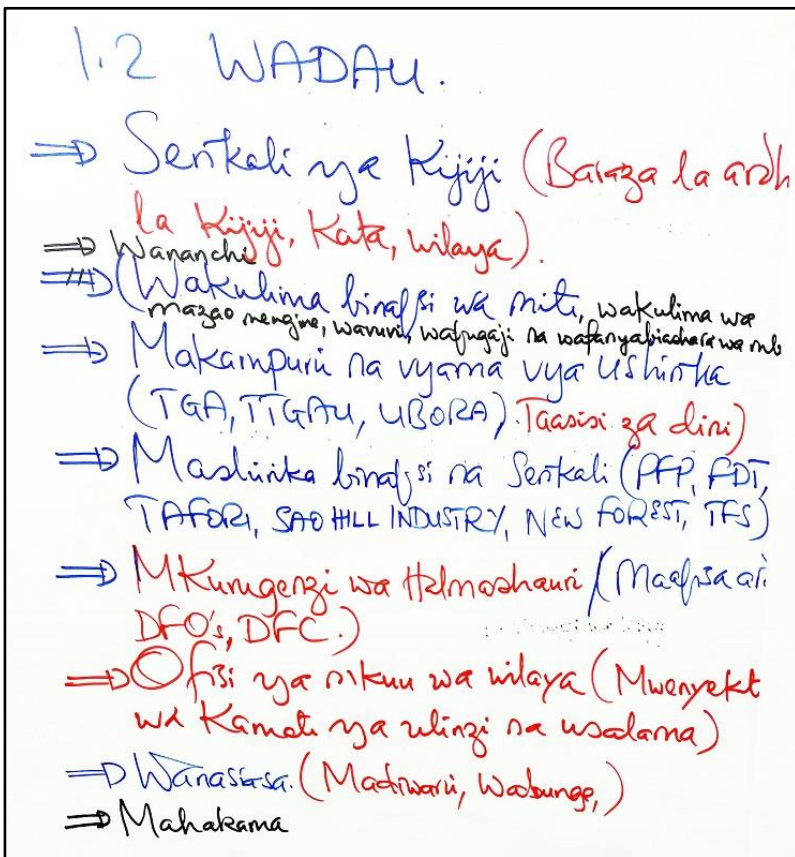 1.2 WADAU.
⇒ Serikali ya Kijiji (Baraza la ardh
la Kijiji, Kata, wilaya).
⇒ Wananchi
⇒ (Wakulima binafsi wa miti, wakulima wa
mazao mengine, wafugaji na wafanyabiashara wa
⇒ Makampuni na vyama vya Ushirika
(TGA, TTGAU, UBORA). Taasisi za dini)
⇒ Mashirika binafsi na Serikali (PFP, FDT,
TAFORI, SAO HILL INDUSTRY, NEW FOREST, TFS)
⇒ Mkurugenzi wa Halmashauri (Maafisa
DFO's, DFC.)
⇒ Ofisi ya mkuu wa wilaya (Mwenyekt
wa Kamati ya ulinzi na usalama)
⇒ Wanasiasa. (Madiwani, Wabunge,)
⇒ Mahakama